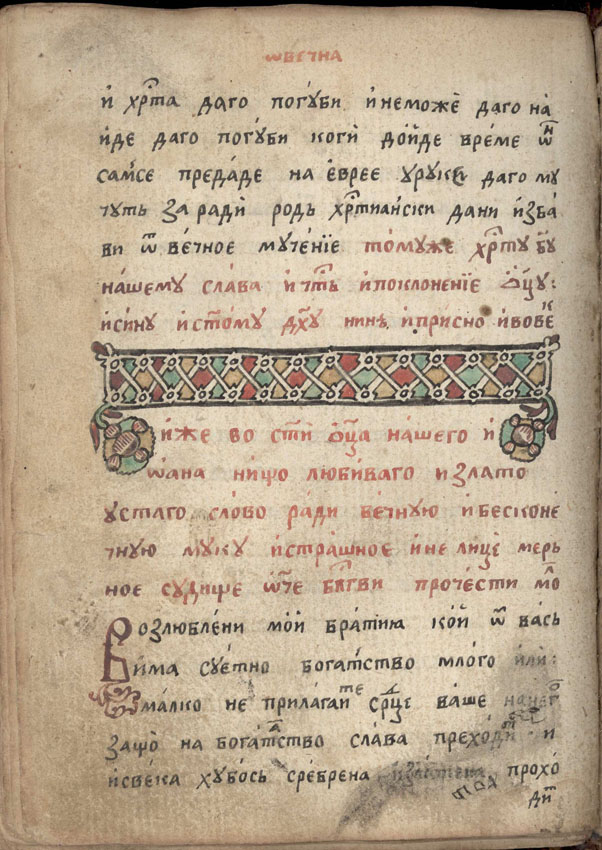 ѡвечна
и҆ хрⷭ҇та даго погꙋби и҆неможѐ даго на
и҆де даго погꙋби коги̇̀ дой҆де време ѡⷩ҇
самⸯсе предаде на є҆вреє ꙋрꙋки дагомꙋ
чꙋтъ за ради̇̀ родъ хрⷭ҇тиански дани и҆зба
ви ѿ ве́чное мꙋче́нїе томꙋже хрⷭ҇тꙋ бг҃ꙋ
нашемꙋ слава и҆ чтⷭ҇ь и҆поклоненїе ѻ҆ц҃ꙋ:
и҆синꙋ и҆ст҃омꙋ дх҃ꙋ нинѣ и҆присно и҆вовеⷦ҇
иже во ст҃и ѻ҆ц҃а нашего и҆
ѡана нищо любиваго и҆злато
ꙋстаго слово ради ве́чнꙋю и҆бесконе
чнꙋю мꙋкꙋ и҆страшное и҆не лицѐ мерь
ное сꙋдище ѿче бл҃гви прочести мⷧ҇о
Возлюбле́ни мои̇̀ братиꙗ кои̇̀ ѿ вась
и҆ма сꙋе́тно богатⸯство млого и҆ли:
малко не прилагаиⷮе срⷣце ваше
защо̀ на богатⷭ҇аство слава преходиⷮ и҆
и҆свека хꙋбось сребрена прохо
диⷮ